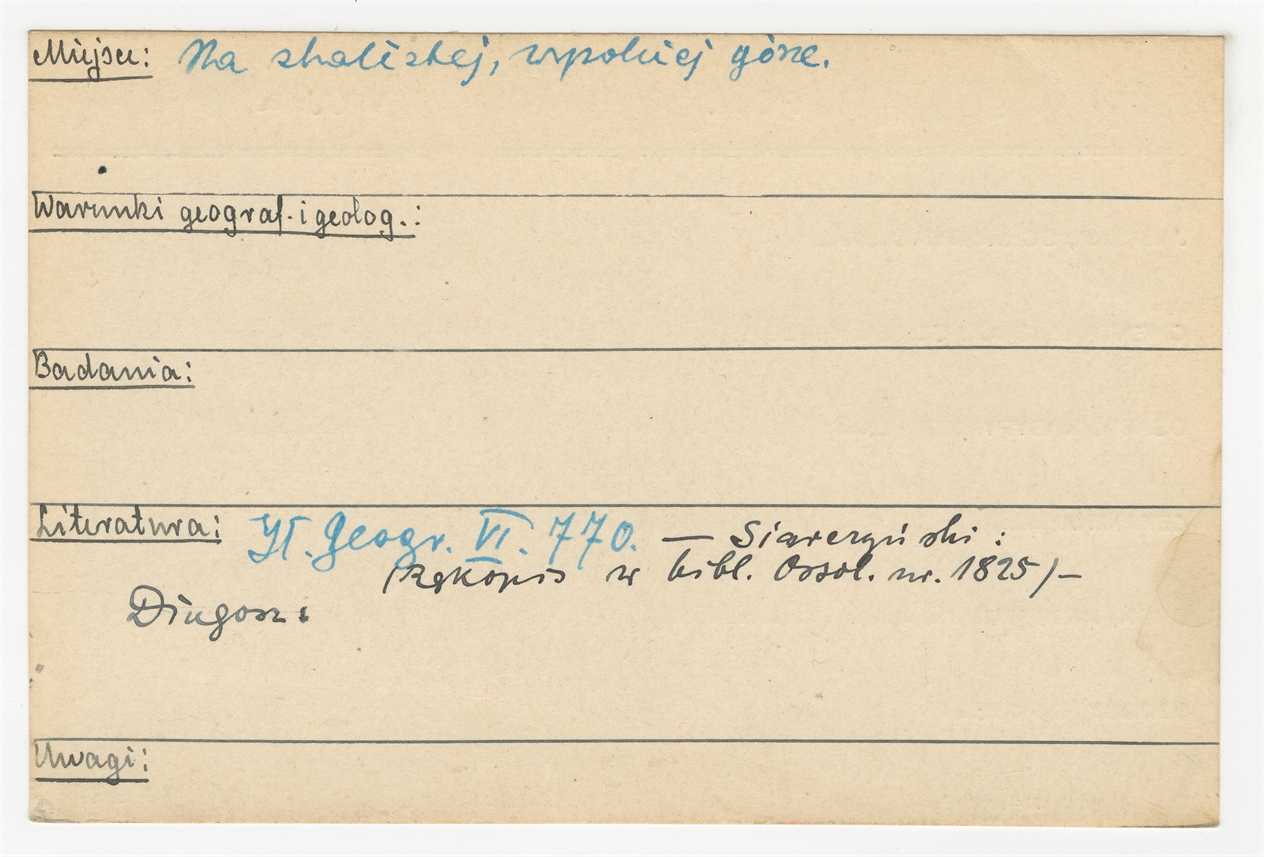 Miejsce: Na skalistej, wysokiej górze.
Warunki geograf. i geolog.:
Badania:
Literatura: Sł. Geogr. VI. 770. — Siarczyński:
/Rękopis w bibl. Ossol. nr. 1825/ —
Długosz:
Uwagi: